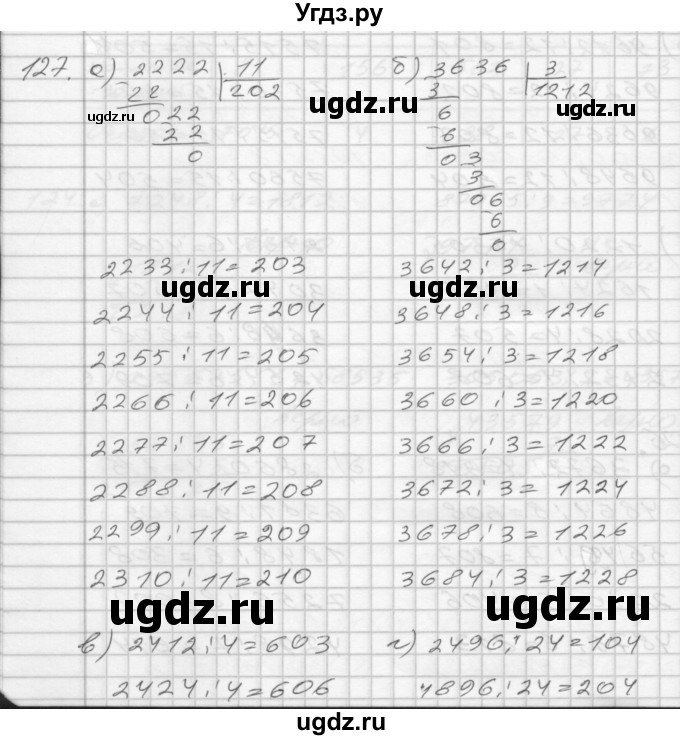 Угдз.ру
127. а) 2222 | 11
22 202
022
22
0
б) 3636 | 3
3 1212
6
6
03
3
06
6
0
ugdz.ru ugdz.ru ugdz.ru
2233 : 11 = 203
2244 : 11 = 204
2255 : 11 = 205
2266 : 11 = 206
2277 : 11 = 207
2288 : 11 = 208
2299 : 11 = 209
2310 : 11 = 210
3642 : 3 = 1214
3648 : 3 = 1216
3654 : 3 = 1218
3660 : 3 = 1220
3666 : 3 = 1222
3672 : 3 = 1224
3678 : 3 = 1226
3684 : 3 = 1228
ugdz.ru ugdz.ru
ugdz.ru ugdz.ru
в) 2412 : 4 = 603
2424 : 4 = 606
г) 2496 : 24 = 104
4896 : 24 = 204
ugdz.ru